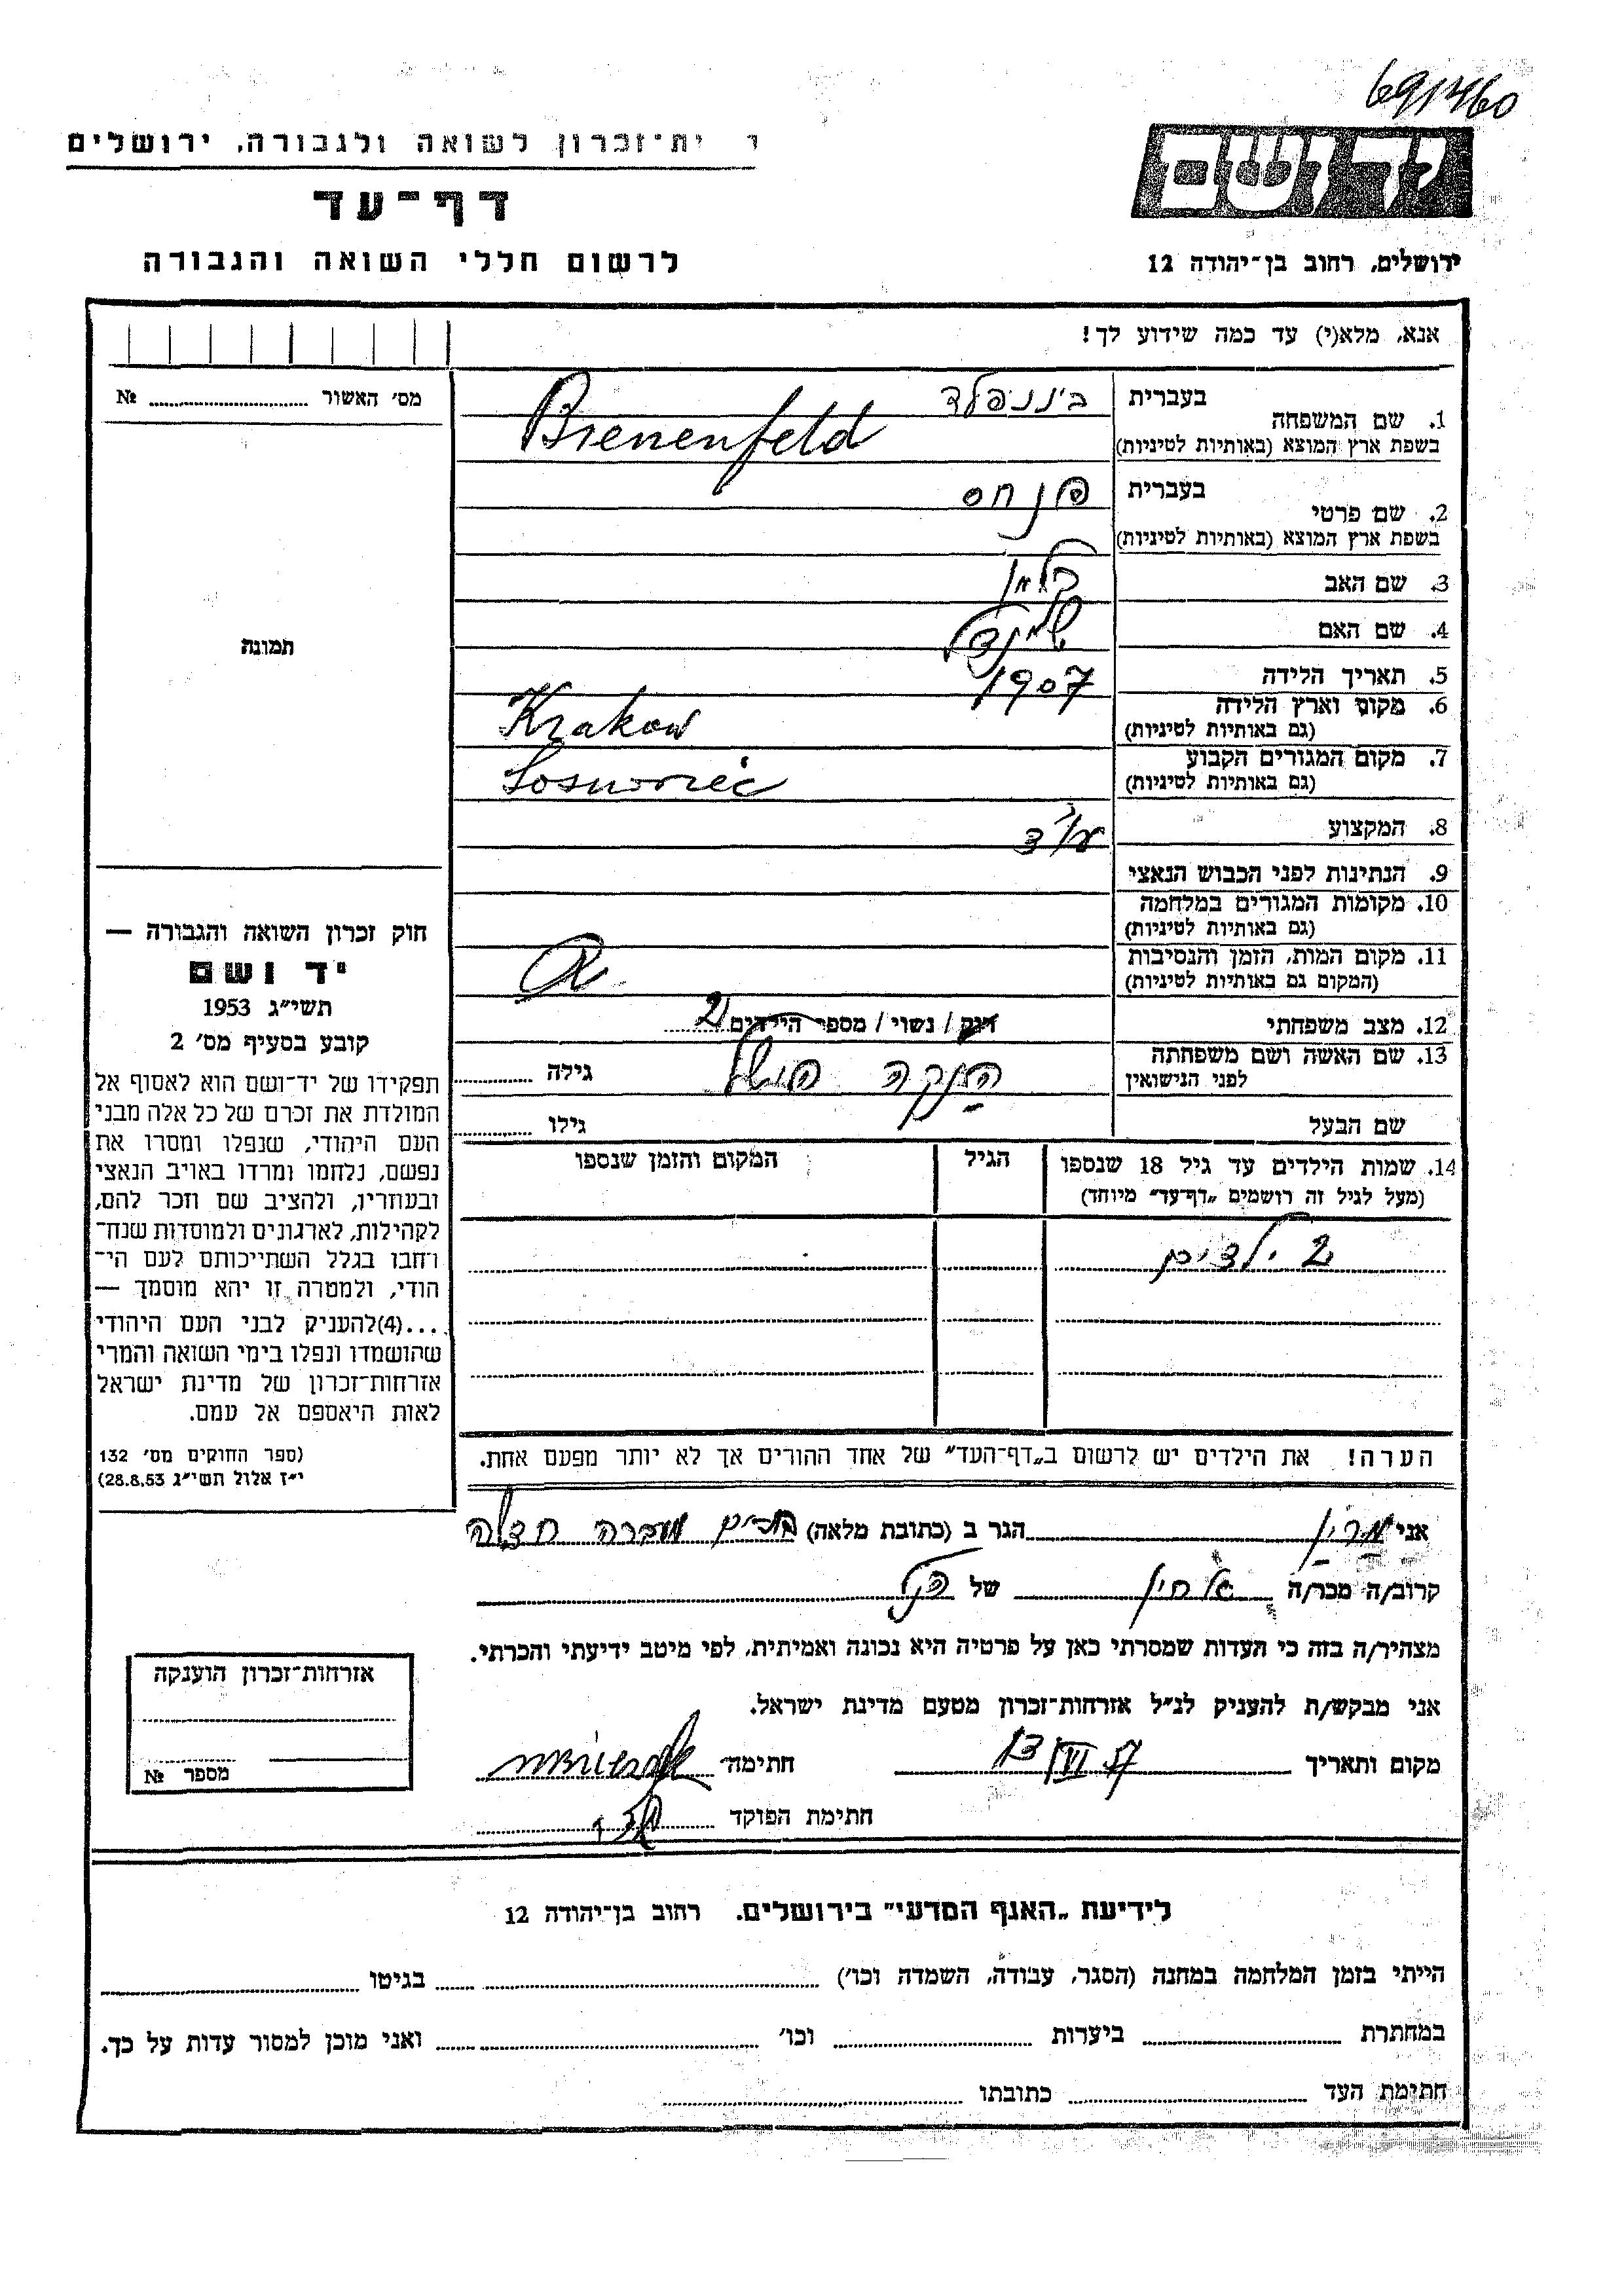 69/460
יד ושם
ית־זכרון לשואה ולגבורה, ירושלים
דף־עד
לרשום חללי השואה והגבורה
ירושלים, רחוב בן־יהודה 12
אנא, מלא(י) עד כמה שידוע לך!
מס' האשור № 
תמונה
חוק זכרון השואה והגבורה —
יד ושם
תשי״ג 1953
קובע בסעיף מס' 2
תפקידו של יד־ושם הוא לאסוף אל
המולדת את זכרם של כל אלה מבני
העם היהודי, שנפלו ומסרו את
נפשם, נלחמו ומרדו באויב הנאצי
ובעוזריו, ולהציב שם וזכר להם,
לקהילות, לארגונים ולמוסדות שנח־
רחבו בגלל השתייכותם לעם הי־
הודי, ולמטרה זו יהא מוסמך —
...(4)להעניק לבני העם היהודי
שהושמדו ונפלו בימי השואה והמרי
אזרחות־זכרון של מדינת ישראל
לאות היאספם אל עמם.
(ספר החוקים מס' 132
י״ז אלול תשי״ג 28.8.53)
בעברית בינפלד
1. שם המשפחה
בשפת ארץ המוצא (באותיות לטיניות) Bienenfeld
בעברית פנחס
2. שם פרטי
בשפת ארץ המוצא (באותיות לטיניות)
3. שם האב
4. שם האם
5. תאריך הלידה 1907
6. מקום וארץ הלידה
(גם באותיות לטיניות) Krakow
7. מקום המגורים הקבוע
(גם באותיות לטיניות) Sosnowiec
8. המקצוע עו״ד
9. הנתינות לפני הכבוש הנאצי
10. מקומות המגורים במלחמה
(גם באותיות לטיניות)
11. מקום המות, הזמן והנסיבות
(המקום גם באותיות לטיניות)
12. מצב משפחתי רוק / נשוי / מספר הילדים 2
13. שם האשה ושם משפחתה
לפני הנישואין גילה
שם הבעל גילו
14. שמות הילדים עד גיל 18 שנספו הגיל המקום והזמן שנספו
(מעל לגיל זה רושמים „דף־עד״ מיוחד)
2 ילדים
הערה! את הילדים יש לרשום ב„דף־העד״ של אחד ההורים אך לא יותר מפעם אחת.
אני הגר ב (כתובת מלאה)
קרוב/ה מכר/ה של
מצהיר/ה בזה כי העדות שמסרתי כאן על פרטיה היא נכונה ואמיתית, לפי מיטב ידיעתי והכרתי.
אני מבקש/ת להעניק לנ״ל אזרחות־זכרון מטעם מדינת ישראל.
מקום ותאריך חתימה
חתימת הפוקד
אזרחות־זכרון הוענקה
מספר №
לידיעת „האגף המדעי״ בירושלים. רחוב בן־יהודה 12
הייתי בזמן המלחמה במחנה (הסגר, עבודה, השמדה וכו') בגיטו
במחתרת ביערות וכו' ואני מוכן למסור עדות על כך.
חתימת העד כתובתו